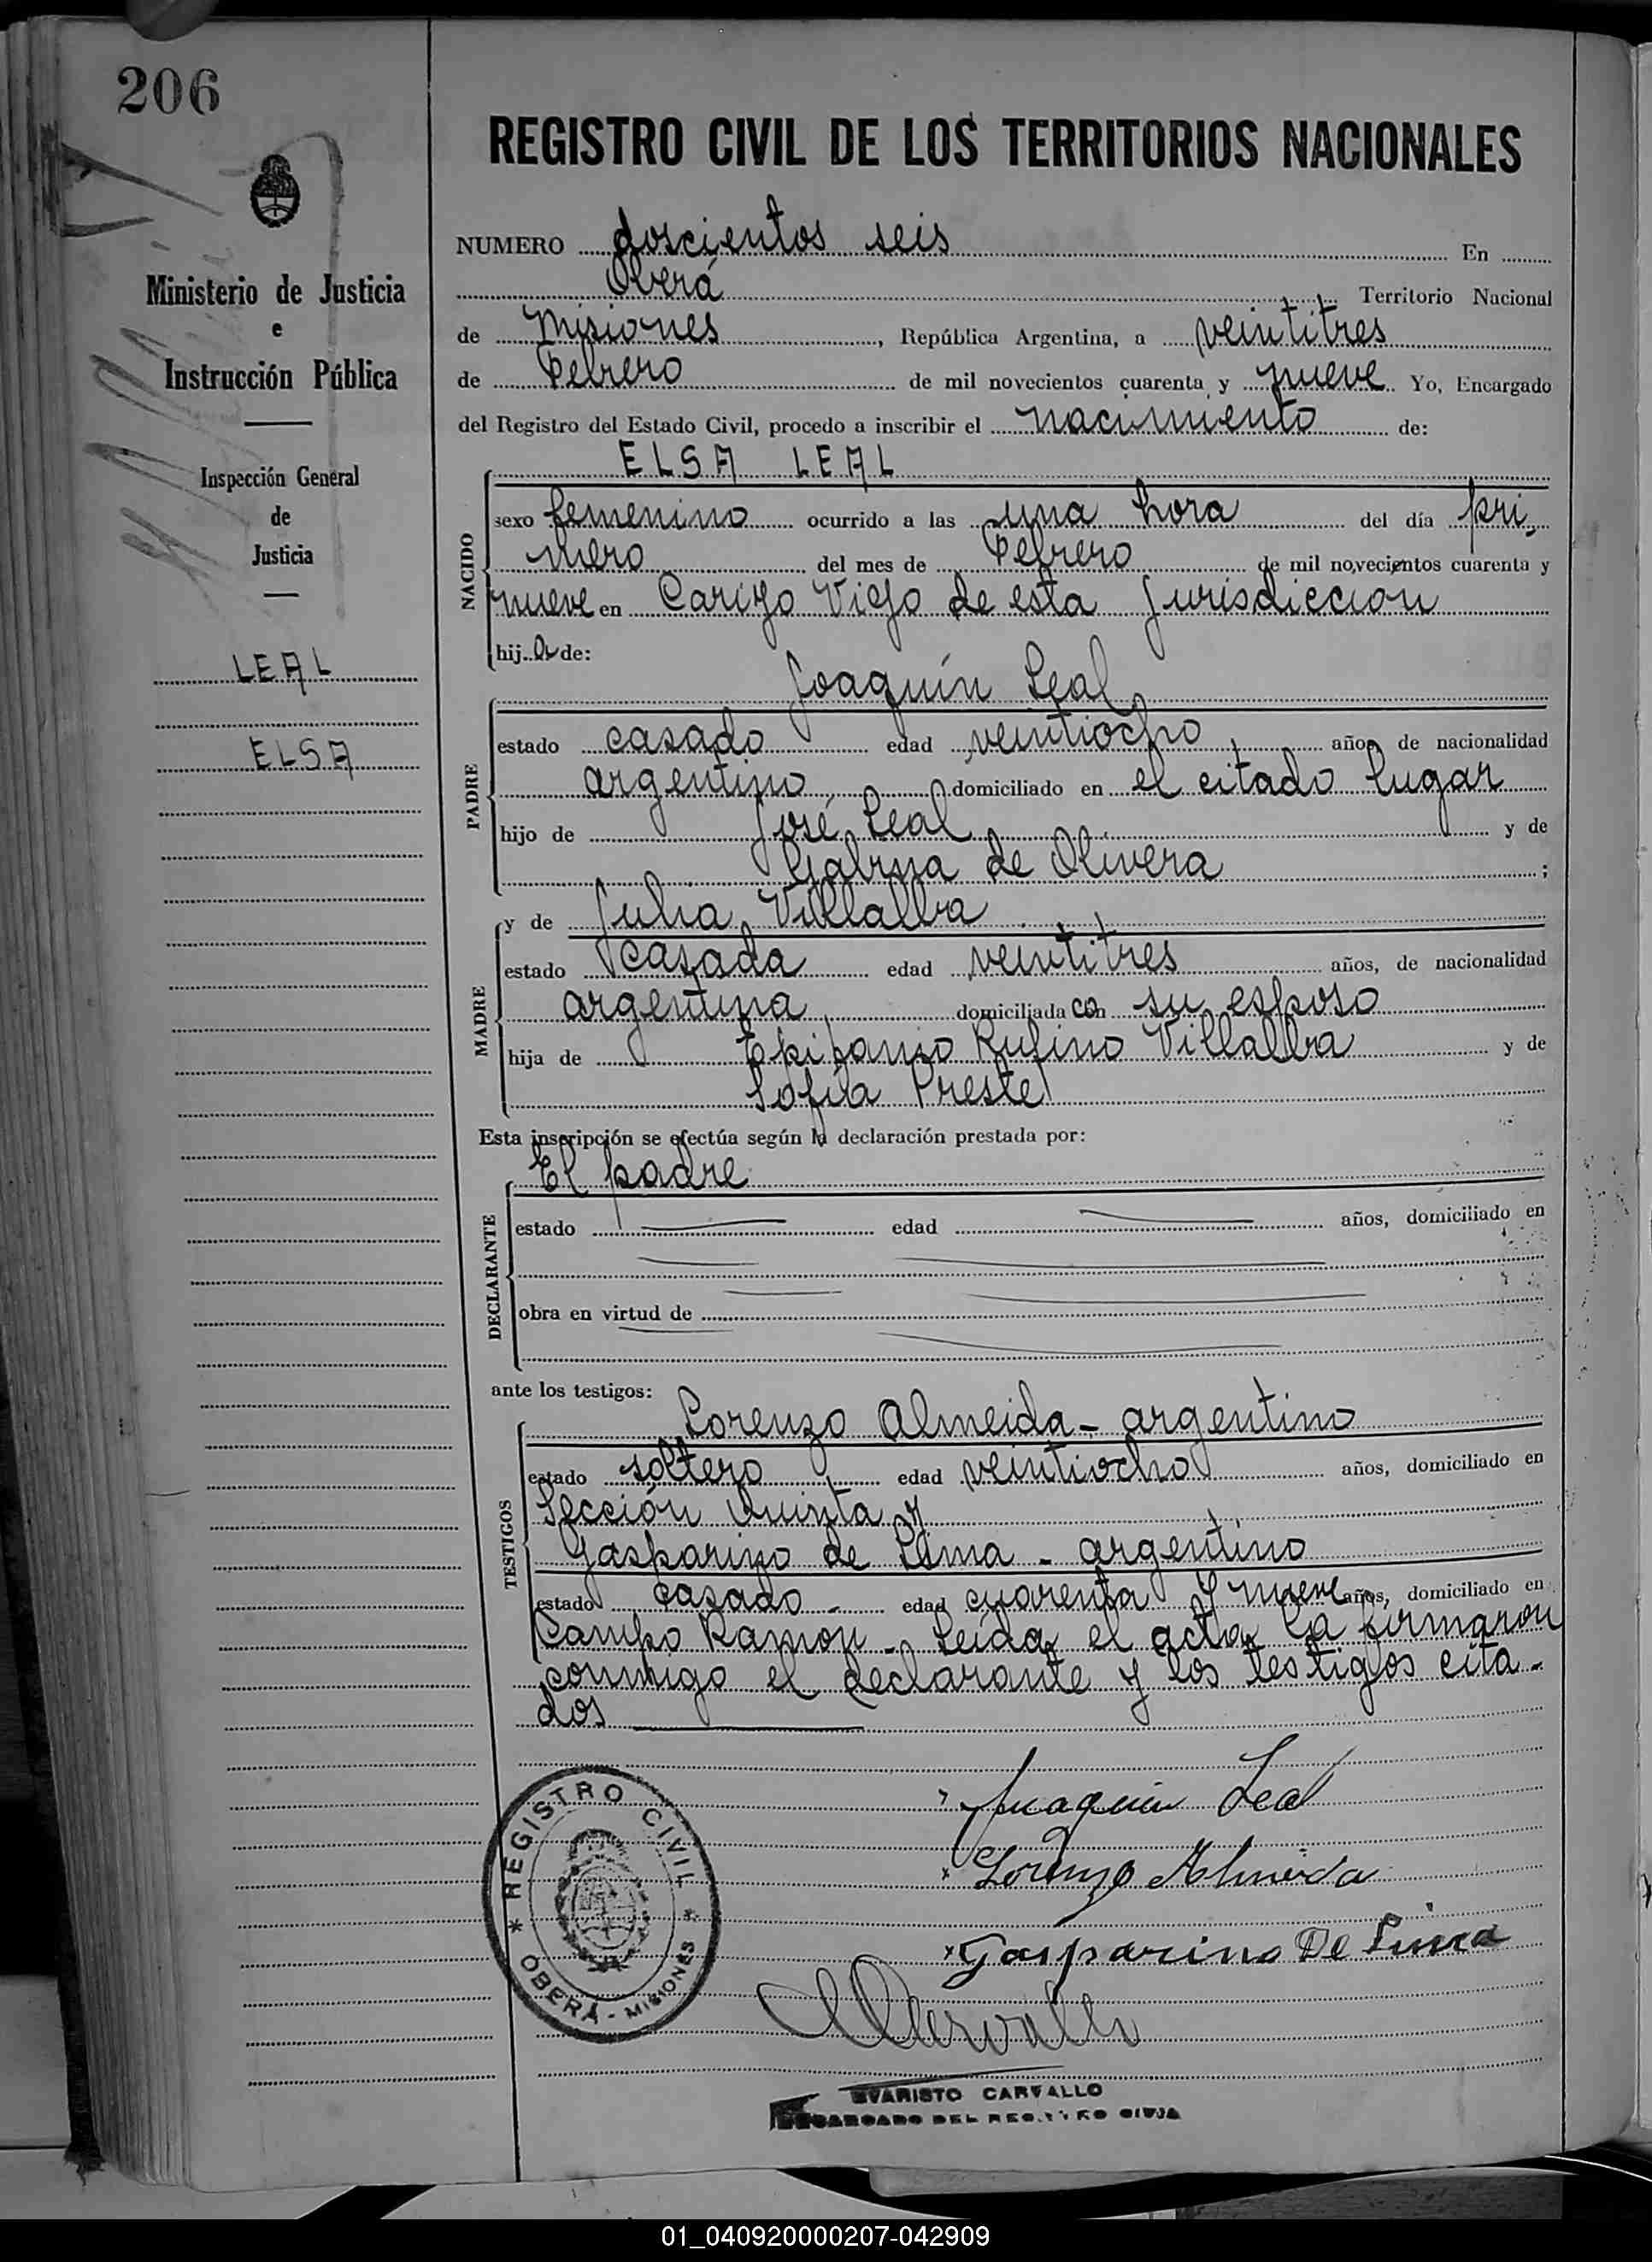 206
Ministerio de Justicia
e
Instrucción Pública
Inspección General
de
Justicia
LEAL
ELSA
REGISTRO CIVIL DE LOS TERRITORIOS NACIONALES
NUMERO doscientos seis En
Oberá Territorio Nacional
de Misiones, República Argentina, a veintitres
de Febrero de mil novecientos cuarenta y nueve Yo, Encargado
del Registro del Estado Civil, procedo a inscribir el nacimiento de:
ELSA LEAL
NACIDO
sexo femenino ocurrido a las una hora del día pri-
mero del mes de Febrero de mil novecientos cuarenta y
nueve en Viejo de esta Jurisdiccion
hija de:
Joaquín Leal
PADRE
estado casado edad veintiocho años de nacionalidad
argentino domiciliado en el citado lugar
hijo de José Leal y de
de Olivera;
y de Julia Villalba
MADRE
estado casada edad veintitres años, de nacionalidad
argentina domiciliada con su esposo
hija de Epifanio Rufino Villalba y de
Sofía Preste
Esta inscripción se efectúa según la declaración prestada por:
El padre
DECLARANTE
estado edad años, domiciliado en
obra en virtud de
ante los testigos:
Lorenzo Almeida - argentino
TESTIGOS
estado soltero edad veintiocho años, domiciliado en
Sección Quinta y
Gasparino de Lima - argentino
estado casado - edad cuarenta y nueve años, domiciliado en
Campo Ramon - Leida el acta la firmaron
conmigo el declarante y los testigos cita-
dos
Juaquin Leal
Lorenzo Almeida
Gasparino De Lima
REGISTRO CIVIL
OBERÁ - MISIONES
EVARISTO CARVALLO
ENCARGADO DEL REGISTRO CIVIL
01_040920000207-042909